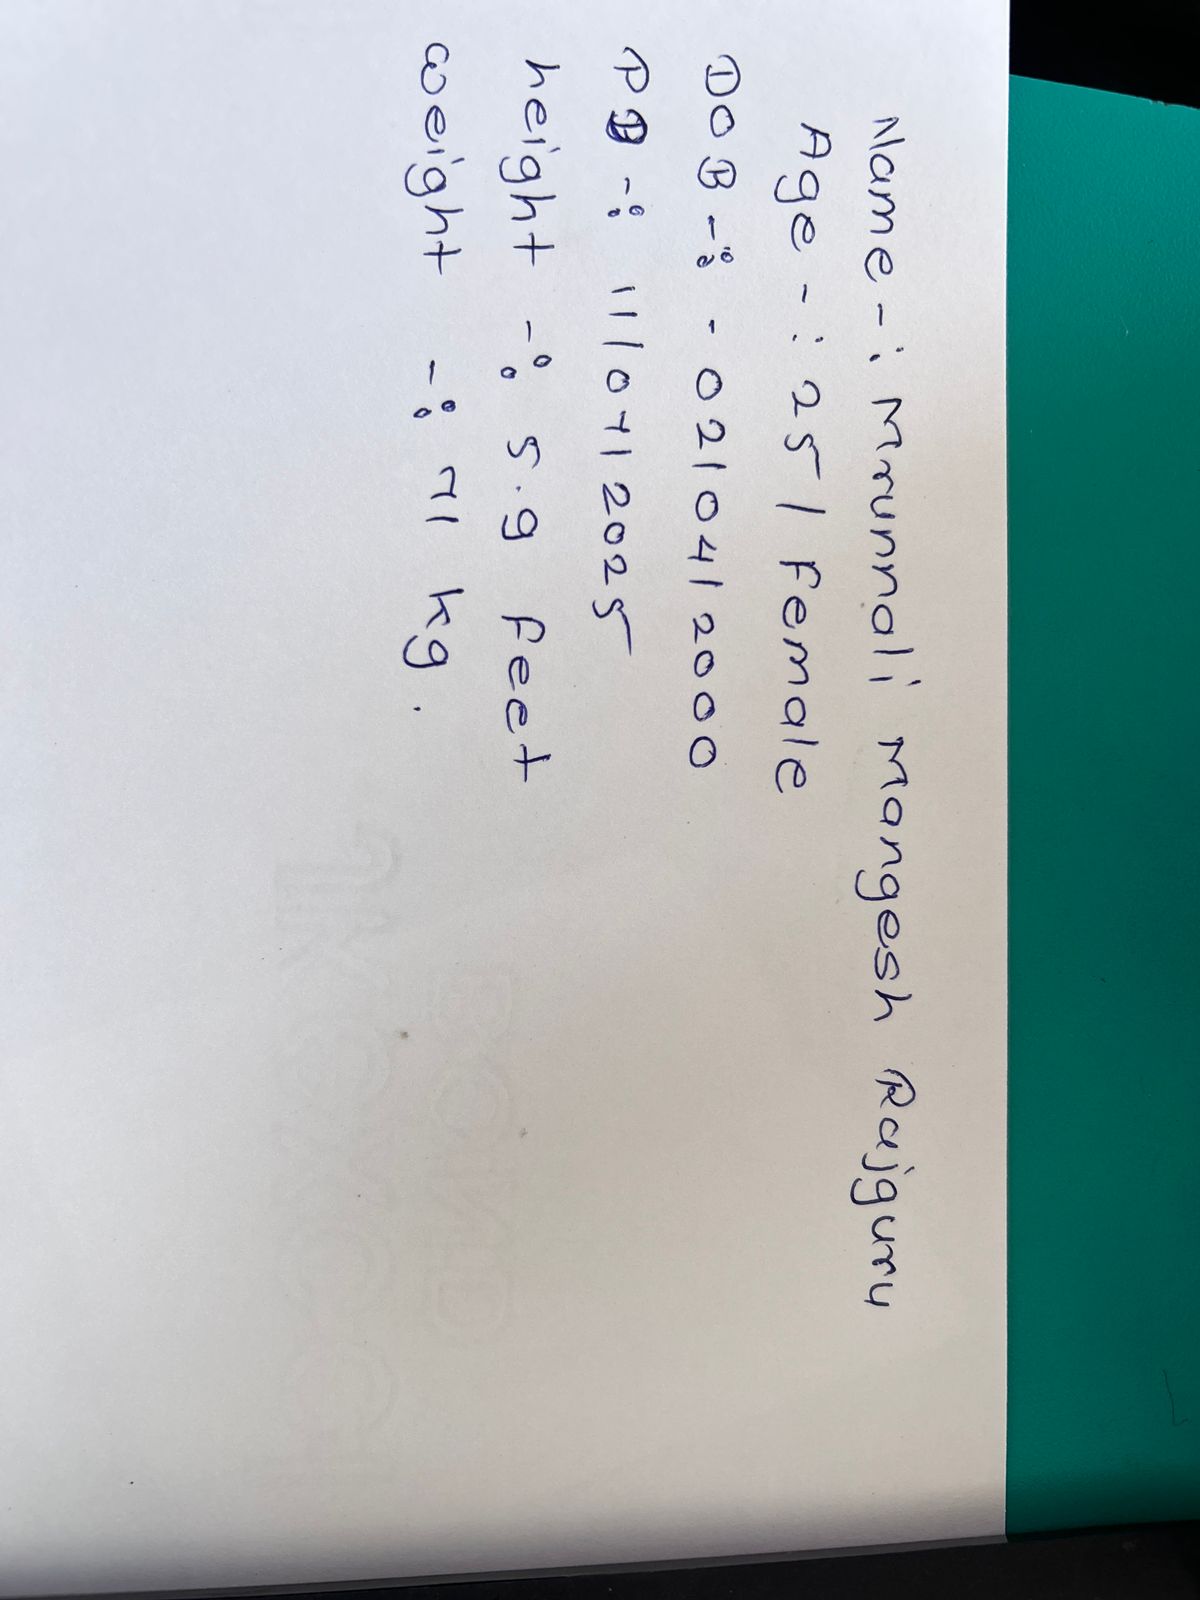 Name -: Mrunnali Mangesh Rajguru
Age -: 25 / Female
DOB -: - 02/04/2000
PD -: 11/07/2025
height -: 5.9 feet
weight -: 71 kg.